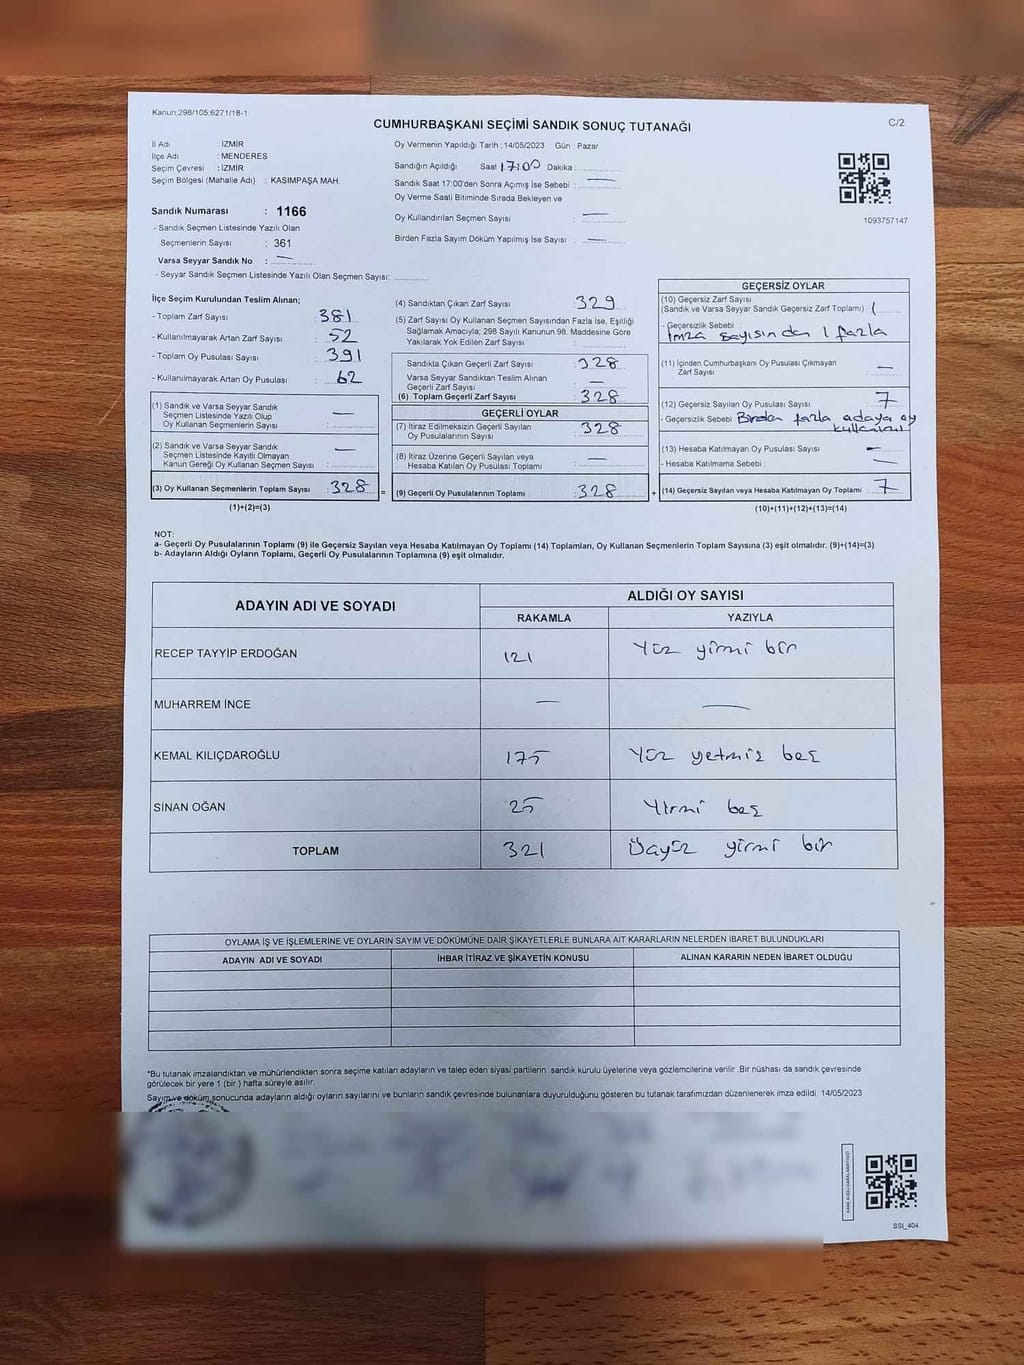 Kanun;298/105;6271/18-1
CUMHURBAŞKANI SEÇİMİ SANDIK SONUÇ TUTANAĞI
C/2
İl Adı : İZMİR
İlçe Adı : MENDERES
Seçim Çevresi : İZMİR
Seçim Bölgesi (Mahalle Adı) : KASIMPAŞA MAH.
Sandık Numarası : 1166
- Sandık Seçmen Listesinde Yazılı Olan
Seçmenlerin Sayısı : 361
Varsa Seyyar Sandık No : —
- Seyyar Sandık Seçmen Listesinde Yazılı Olan Seçmen Sayısı:
Oy Vermenin Yapıldığı Tarih : 14/05/2023 Gün : Pazar
Sandığın Açıldığı Saat 17:00 Dakika :
Sandık Saat 17:00'den Sonra Açımış İse Sebebi : —
Oy Verme Saati Bitiminde Sırada Bekleyen ve
Oy Kullandırılan Seçmen Sayısı : —
Birden Fazla Sayım Döküm Yapılmış İse Sayısı : —
1093757147
İlçe Seçim Kurulundan Teslim Alınan;
- Toplam Zarf Sayısı : 381
- Kullanılmayarak Artan Zarf Sayısı : 52
- Toplam Oy Pusulası Sayısı : 391
- Kullanılmayarak Artan Oy Pusulası : 62
(1) Sandık ve Varsa Seyyar Sandık
Seçmen Listesinde Yazılı Olup
Oy Kullanan Seçmenlerin Sayısı : —
(2) Sandık ve Varsa Seyyar Sandık
Seçmen Listesinde Kayıtlı Olmayan
Kanun Gereği Oy Kullanan Seçmen Sayısı : —
(3) Oy Kullanan Seçmenlerin Toplam Sayısı : 328
(1)+(2)=(3)
(4) Sandıktan Çıkan Zarf Sayısı : 329
(5) Zarf Sayısı Oy Kullanan Seçmen Sayısından Fazla İse, Eşitliği
Sağlamak Amacıyla; 298 Sayılı Kanunun 98. Maddesine Göre
Yakılarak Yok Edilen Zarf Sayısı :
Sandıkta Çıkan Geçerli Zarf Sayısı : 328
Varsa Seyyar Sandıktan Teslim Alınan
Geçerli Zarf Sayısı : —
(6) Toplam Geçerli Zarf Sayısı : 328
GEÇERLİ OYLAR
(7) İtiraz Edilmeksizin Geçerli Sayılan
Oy Pusulalarının Sayısı : 328
(8) İtiraz Üzerine Geçerli Sayılan veya
Hesaba Katılan Oy Pusulası Toplamı : —
= (9) Geçerli Oy Pusulalarının Toplamı : 328 +
GEÇERSİZ OYLAR
(10) Geçersiz Zarf Sayısı
(Sandık ve Varsa Seyyar Sandık Geçersiz Zarf Toplamı) : 1
- Geçersizlik Sebebi
İmza sayısından 1 fazla
(11) İçinden Cumhurbaşkanı Oy Pusulası Çıkmayan
Zarf Sayısı : —
(12) Geçersiz Sayılan Oy Pusulası Sayısı : 7
- Geçersizlik Sebebi Birden fazla adaya oy
kullanımı
(13) Hesaba Katılmayan Oy Pusulası Sayısı : —
- Hesaba Katılmama Sebebi : —
(14) Geçersiz Sayılan veya Hesaba Katılmayan Oy Toplamı : 7
(10)+(11)+(12)+(13)=(14)
NOT:
a- Geçerli Oy Pusulalarının Toplamı (9) ile Geçersiz Sayılan veya Hesaba Katılmayan Oy Toplamı (14) Toplamları, Oy Kullanan Seçmenlerin Toplam Sayısına (3) eşit olmalıdır. (9)+(14)=(3)
b- Adayların Aldığı Oyların Toplamı, Geçerli Oy Pusulalarının Toplamına (9) eşit olmalıdır.
ADAYIN ADI VE SOYADI
ALDIĞI OY SAYISI
RAKAMLA YAZIYLA
RECEP TAYYİP ERDOĞAN 121 Yüz yirmi bir
MUHARREM İNCE — —
KEMAL KILIÇDAROĞLU 175 Yüz yetmiş beş
SİNAN OĞAN 25 Yirmi beş
TOPLAM 321 Üçyüz yirmi bir
OYLAMA İŞ VE İŞLEMLERİNE VE OYLARIN SAYIM VE DÖKÜMÜNE DAİR ŞİKAYETLERLE BUNLARA AİT KARARLARIN NELERDEN İBARET BULUNDUKLARI
ADAYIN ADI VE SOYADI İHBAR İTİRAZ VE ŞİKAYETİN KONUSU ALINAN KARARIN NEDEN İBARET OLDUĞU
*Bu tutanak imzalandıktan ve mühürlendikten sonra seçime katılan adayların ve talep eden siyasi partilerin sandık kurulu üyelerine veya gözlemcilerine verilir. Bir nüshası da sandık çevresinde
görülecek bir yere 1 (bir) hafta süreyle asılır.
Sayım ve döküm sonucunda adayların aldığı oyların sayılarını ve bunların sandık çevresinde bulunanlara duyurulduğunu gösteren bu tutanak tarafımızdan düzenlenerek imza edildi. 14/05/2023
SSI_404